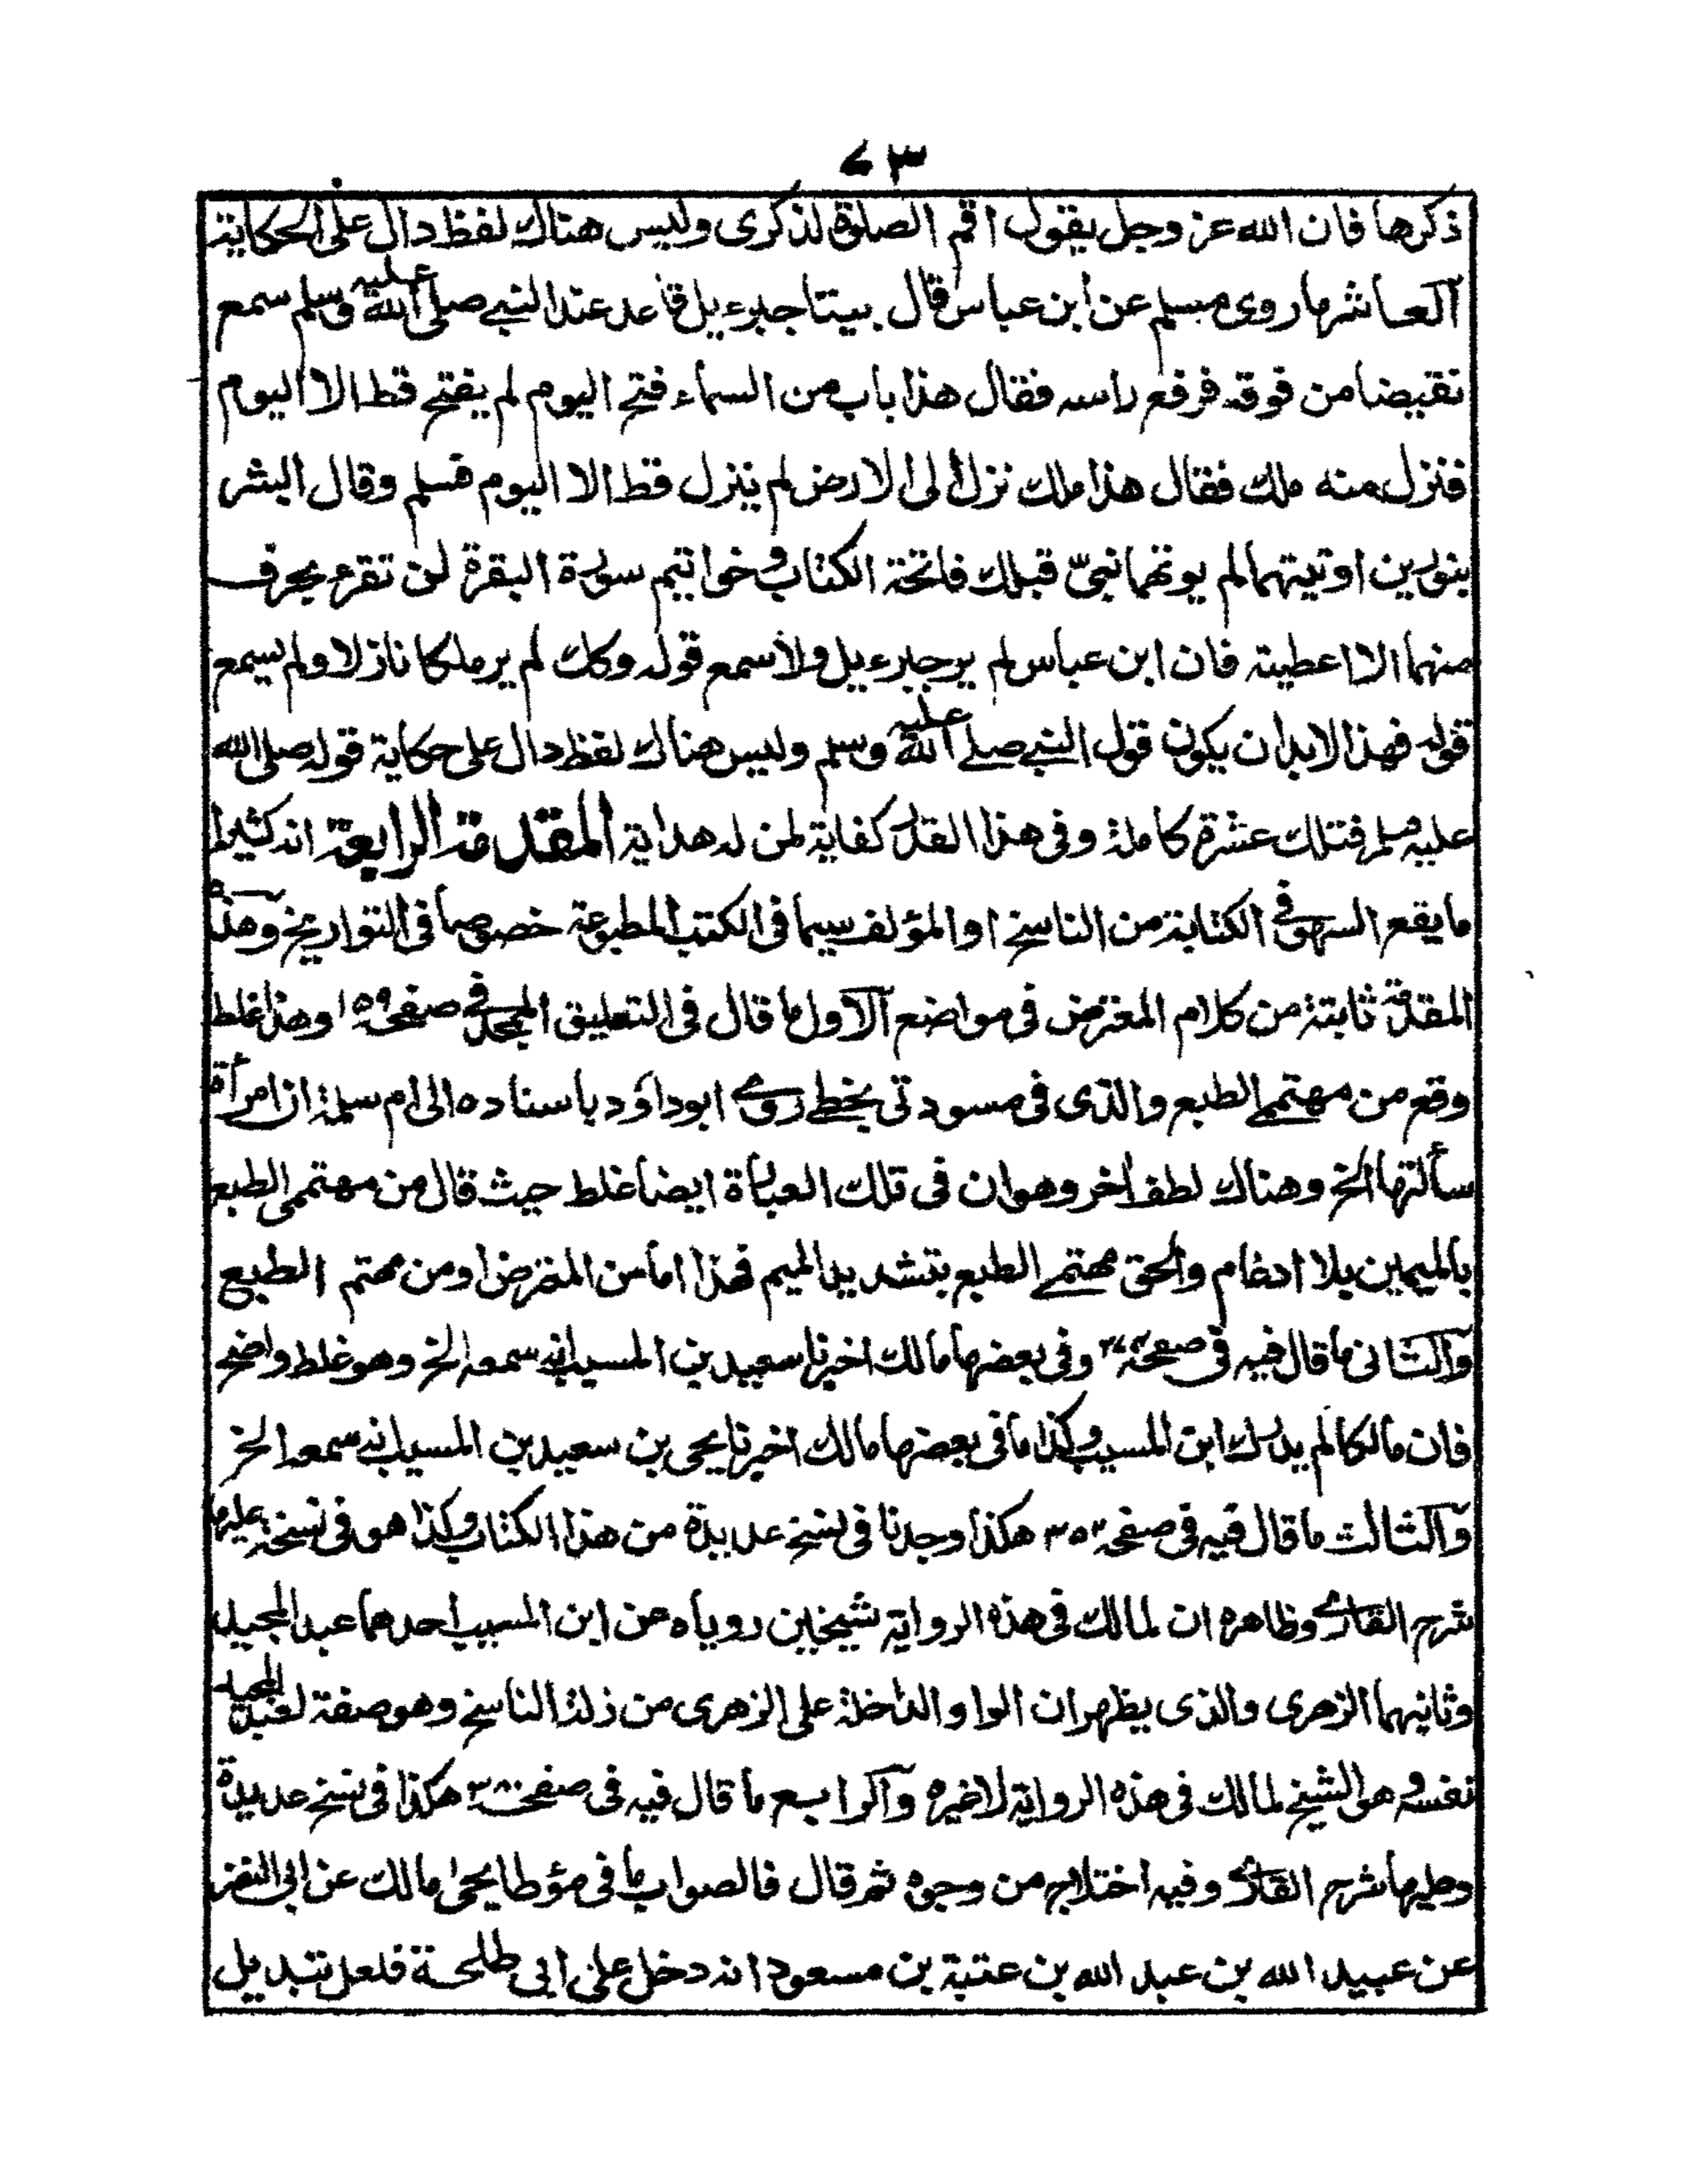 ٧٣
ذكرها فان الله عز وجل يقول اقم الصلوة لذكرى وليس هناك لفظ دال على الحكاية
آلعاشر ما روى مسلم عن ابن عباس قال بينا جبرءيل قاعد عند النبي صلى الله عليه وسلم سمع
نقيضا من فوقه فرفع راسه فقال هذا باب من السماء فتح اليوم لم يفتح قط الا اليوم
فنزل منه ملك فقال هذا ملك نزل الى الارض لم ينزل قط الا اليوم فسلم وقال ابشر
بنورين اوتيتهما لم يوتهما نبيّ قبلك فاتحة الكتاب وخواتيم سورة البقرة لن تقرء بحرف
منهما الا اعطيته فان ابن عباس لم ير جبرءيل ولا سمع قوله وكك لم ير ملكا نازلا ولم يسمع
قوله فهذا لابد ان يكون قول النبي صلے الله عليه وسلم وليس هناك لفظ دال على حكاية قوله صلى الله
عليه وسلم فتلك عشرة كاملة وفى هذا القدر كفاية لمن له هداية المقدمة الرابعة انه كثيرا
ما يقع السهو في الكتابة من الناسخ او المؤلف سيما فى الكتب المطبوعة خصوصا فى التواريخ وهذه
المقدمة ثابتة من كلام المعترض فى مواضع آلاول ما قال فى التعليق الممجد في صفحه ١٥٩ وهذا غلط
وقع من مهتمے الطبع والذى فى مسودتى بخطے روے ابوداؤد باسناده الى ام سلمة ان امرأة
سألتها الخ وهناك لطف اخر وهو ان فى تلك العبارة ايضا غلط حيث قال من مهتممى الطبع
بالميمين بلا ادغام والحق مهتمے الطبع بتشديد الميم فهذا اما من المعترض او من مهتم الطبع
وآلثانى ما قال فيه فى صفحة وفى بعضها مالك اخبرنا سعيد بن المسيب انه سمعه الخ وهو غلط واضح
فان مالكا لم يدرك ابن المسيب وكذا ما فى بعضها مالك اخبرنا يحيى بن سعيد بن المسيب انه سمعه الخ
وآلثالث ما قال فيه فى صفحه ٣٥٣ هكذا وجدنا فى نسخ عديدة من هذا الكتاب وكذا هو فى نسخة عليها
شرح القارے وظاهره ان لمالك فى هذه الرواية شيخين روياه عن ابن المسيب احدهما عبد المجيد
وثانيهما الزهرى والذى يظهر ان الواو الداخلة على الزهرى من زلة الناسخ وهو صفة لعبد المجيد
نفسه وهو الشيخ لمالك فى هذه الرواية لا غيره وآلرابع ما قال فيه فى صفحة هكذا فى نسخ عديدة
وعليها شرح القارے وفيه اختلاج من وجوه ثم قال فالصواب ما فى مؤطا يحيى مالك عن ابى النضر
عن عبيد الله بن عبد الله بن عتبة بن مسعود انه دخل على ابى طلحة فلعل تبديل